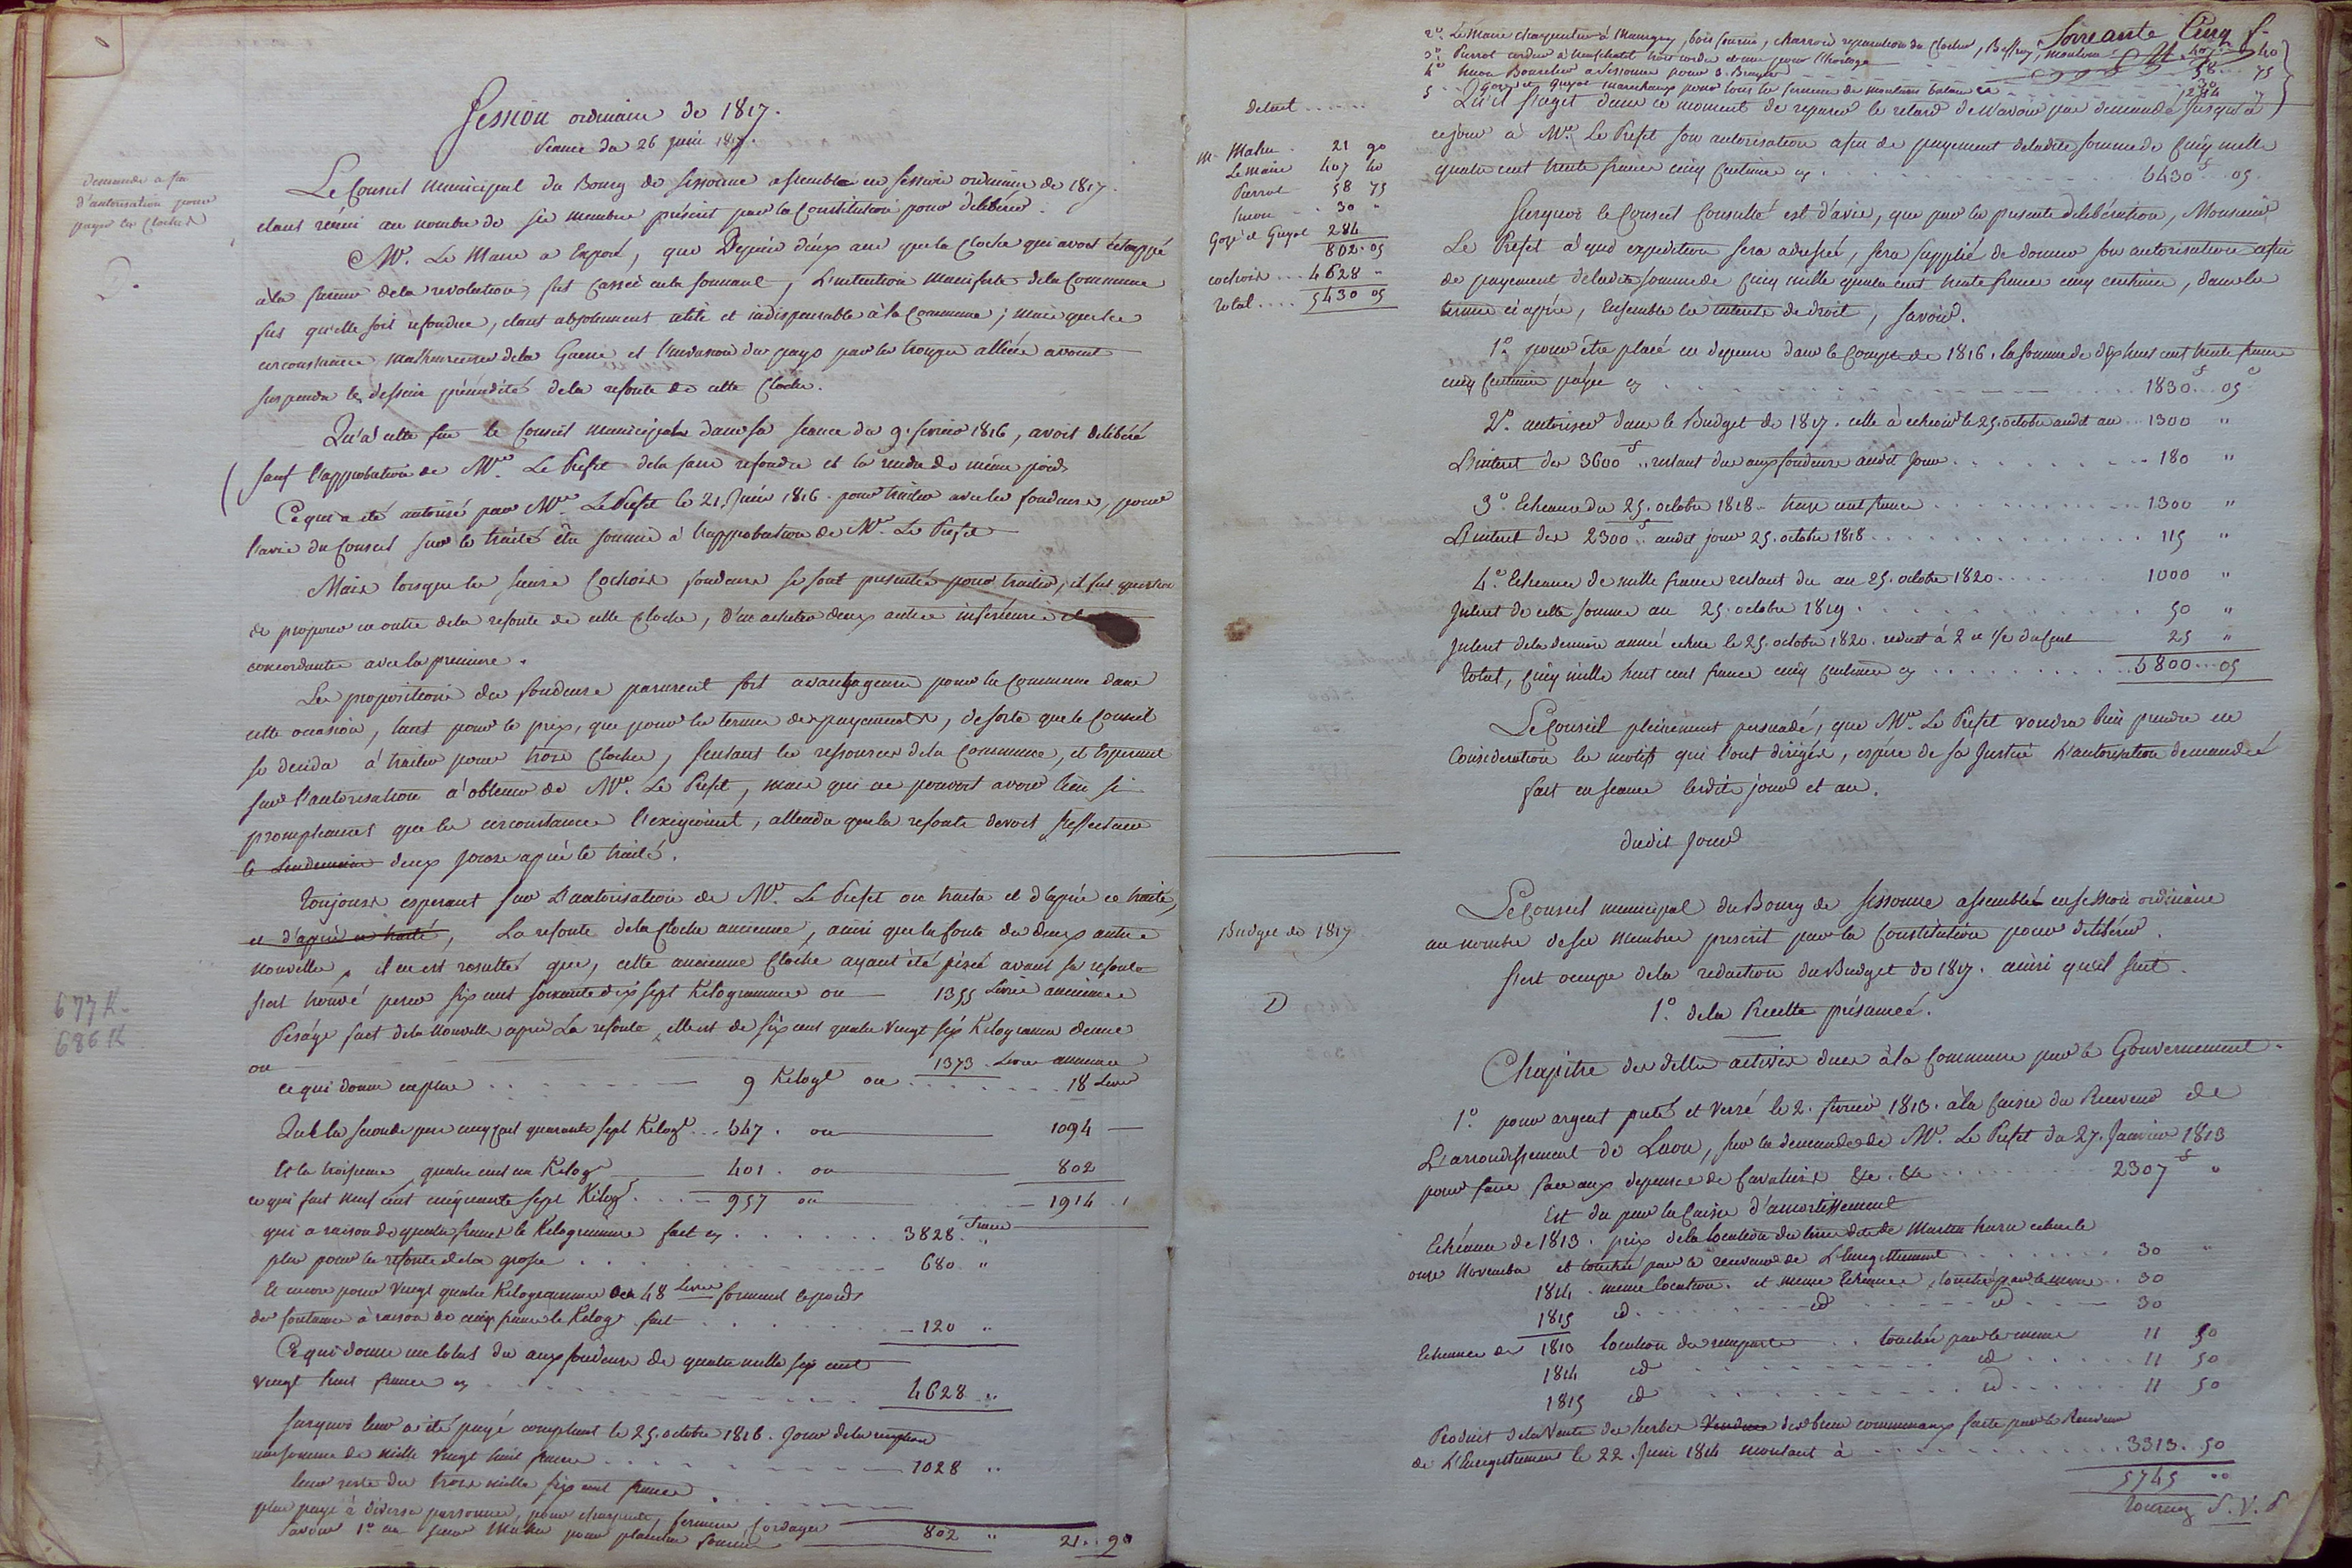 Session ordinaire de 1817.
Séance du 26 juin 1817.
demande a fin
d'autorisation pour
payer les Cloches
D.
Le Conseil Municipal du Bourg de Sissonne assemblé en Session ordinaire de 1817.
etant réuni au nombre de six membres préscrit par la Constitution pour délibérer.
Mr. Le Maire a Exposé, que Depuis deux ans que la Cloche qui avoit échappé
à la fureur de la revolution, fut Cassée en la sonnant, L'intention manifeste de la Commune
fus qu'elle soit refondue, étant absolument utile et indispensable à la Commune; mais que les
circonstances malheureuses de la Guerre et l'invasion du pays par les troupes alliées avoient
suspendu le dessein prémédité de la refonte de cette Cloche.
Qu'a cette fin le Conseil municipal dans sa seance du 9. fevrier 1816, avoit délibéré
sauf l'approbation de Mr. Le Préfet de la faire refondre et la rendre de même poids
Ce qui a été autorisé par Mr. Le Préfet le 21. Juin 1816. pour traiter avec les fondeurs, pour
l'avis du Conseil sur le traité être soumis à l'approbation de Mr. Le Préfet
Mais lorsque les sieurs Cochois fondeurs se sont presentés pour traiter, il fut question
de proposer en outre de la refonte de cette Cloche, d'en acheter deux autres inférieures et
concordantes avec la premiere.
Les propositions des fondeurs parurent fort avantageuses pour la Commune dans
cette occasion, tant pour le prix, que pour les termes des payements, de sorte que le Conseil
se decida à traiter pour trois Cloches, sentant les ressources de la Commune, et Esperant
sur l'autorisation à obtenir de Mr. Le Préfet, mais qui ne pouvoit avoir lieu si
promptement que les circonstances l'exigeoient, attendu que la refonte devoit s'effectuer
le lendemain deux jours après le traité.
Toujours esperant sur L'autorisation de Mr. Le Préfet on traita et d'après ce traité,
et d'après ce traité, La refonte de la Cloche ancienne, ainsi que la fonte des deux autres
nouvelles, il en est resulté que, cette ancienne Cloche ayant été pésée avant sa refonte
s'est trouvé peser six cent soixante dix sept Kilogrammes ou 1355 Livres anciennes
677 K.
686 K
Pesage fait de la Nouvelle après La refonte, elle est de six cent quatre vingt six Kilogrammes demie
ou 1373 Livres anciennes
ce qui donne en plus 9 Kilogs ou 18 Livres
Que la seconde pese cinq Cent quarante sept Kilogs 547. ou 1094
Et la troisieme quatre cent un Kilogs 401. ou 802
ce qui fait neuf cent cinquante sept Kilogs 957 ou 1914
qui a raison de quatre francs le Kilogramme fait cy 3828 francs "
plus pour la refonte de la grosse 680 "
Et encore pour vingt quatre Kilogrammes ou 48 Livres formant le poids
de fontaine à raison de cinq francs le Kilogs fait 120 "
Ce qui donne un total du aux fondeurs de quatre mille six cent
vingt huit francs cy 4628 "
Surquoi leur a été payé comptant le 25. octobre 1816. jour de la reception
une somme de mille vingt huit francs 1028 "
leur reste du trois mille six cent francs
plus payé à diverses personnes, pour charpente, ferrures, Cordages 802 "
Savoir 1° au sieur Mahu pour planches fournies 21. 90
Soixante Cinq f.
2°. Le Maire charpentier à Mauregny, bois fournis, charrois reparation du Clocher, Beffroy, moutons 407 40
3° Pierrot cordier à Neufchatel trois cordes et une pour l'horloge 58 75
4° huon Bourelier a Sissonne pour 3. Brayers 30 "
5 Gozé et Guyot marechaux pour tous les ferrures des moutons balances 284 "
Qu'il s'agit dans ce moment de reparer le retard de n'avoir pas demandé jusqu'à
ce jour à Mr. Le Prefet son autorisation afin de payement de ladite somme de Cinq mille
quatre cent trente francs cinq Centimes cy 5430f 05.
detail
Mr. Mahu 21 90
Lemaire 407 40
Pierrot 58 75
huon 30 "
Gozé et Guyot 284
802.05
cochois 4628 "
total 5430 05
Surquoi le Conseil Consulté est d'avis, que par la presente délibération, Monsieur
Le Préfet à qui expedition sera adressée, sera supplié de donner son autorisation afin
de payement de ladite somme de Cinq mille quatre cent trente francs cinq centimes, dans les
termes ci après, Ensemble les interets de droit, Savoir.
1°. pour être placé en depense dans le Compte de 1816. la somme de dix huit cent trente francs
cinq Centimes payée cy 1830f 05c
2°. autoriser dans le Budget de 1817. celle à echeoir le 25. octobre audit an 1300 "
L'interet des 3600f.. restant dus aux fondeurs audit jour 180 "
3° Echeance du 25. octobre 1818 treize cent francs 1300 "
L'interet des 2300f.. audit jour 25. octobre 1818 115 "
4°. Echeance de mille francs restant du au 25. octobre 1820 1000 "
Interet de cette somme au 25. octobre 1819 50 "
Interet de la derniere année echue le 25. octobre 1820. reduit à 2 et 1/2 du cent 25 "
Total, Cinq mille huit cent francs cinq Centimes cy 5800 05
Le Conseil pleinement persuadé, que Mr. Le Préfet voudra bien prendre en
Consideration les motifs qui l'ont dirigés, espere de sa Justice L'autorisation demandée
fait en seance lesdits jour et an.
dudit jour
Budget de 1817.
D
Le Conseil municipal du Bourg de Sissonne assemblé en session ordinaire
au nombre de six membres prescrit par la Constitution pour délibérer.
s'est occupé de la redaction du Budget de 1817. ainsi qu'il suit.
1°. de la Recette présumée.
Chapitre des dettes actives dues à la Commune par le Gouvernement.
1°. pour argent preté et versé le 2. fevrier 1813. à la Caisse du Receveur de
L'arrondissement de Laon, sur la demande de Mr. Le Prefet du 27. Janvier 1813
pour faire face aux dépenses de Cavaliers &c. &c 2307f "
Est du par la Caisse d'amortissement
Echéance de 1813. prix de la location du terrein dit de Martin haru echue le
onze Novembre et touché par le receveur de L'Enregistrement 30 "
1814. meme location. et meme Echeance, touché par le meme 30
1815 id id id 30
Echeance de 1813 location des remparts touchée par le meme 11 50
1814 id id 11 50
1815 id id 11 50
Produit de la Vente des herbes Vendues des biens communaux faite par le Receveur
de L'Enregistrement le 22. Juin 1814 montant à 3313. 50
5745 "
tournez S.V.P